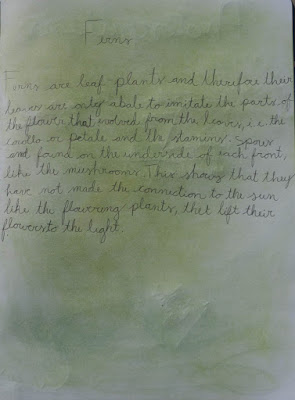 Ferns
Ferns are leaf-plants and therefore their
leaves are only abale to imitate the parts of
the flower that evolved from the leaves, i.e. the
corolla or petale and the stamins. Spores
are found on the underside of each front,
like the mushrooms. This shows that they
have not made the connection to the sun
like the flowring plants, thet lift their
flowers to the light.